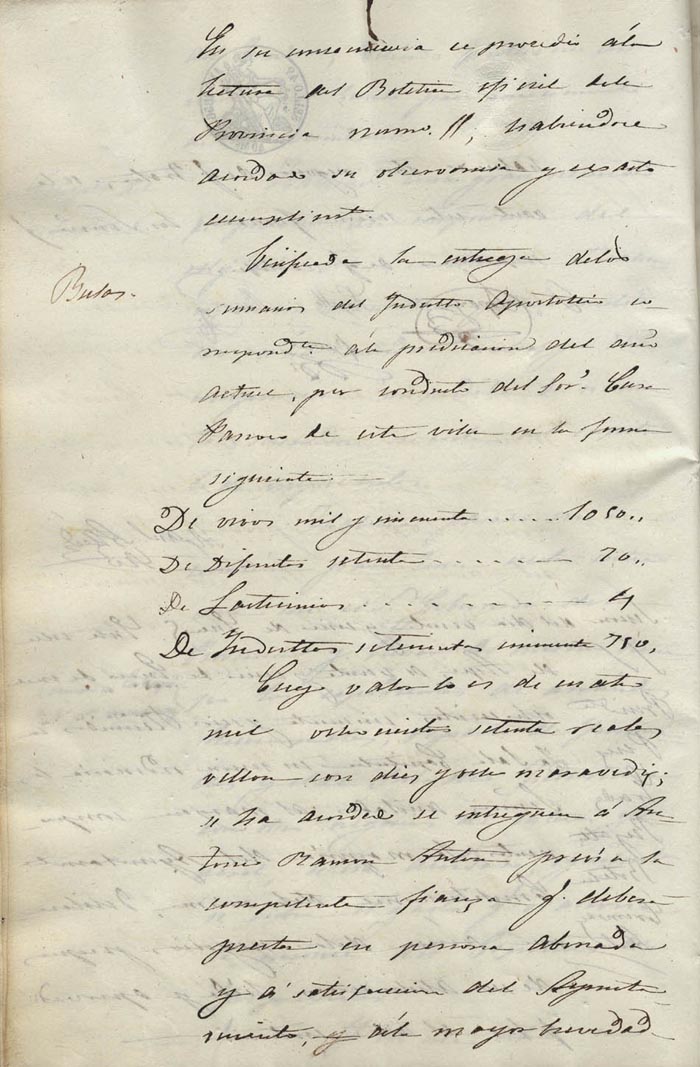 En su consecuencia se procedió á la
lectura del Boletin oficial dela
Provincia num. 11, habiendose
acordado su observancia y exacto
cumplimt.
Bulas.
Verificada la entrega delos
sumarios del Indulto Apostolico co-
rrespondte. ála predicacion del año
actual, por conducto del Sor. Cura
Parroco de esta villa en la forma
siguiente.
De vivos mil y cincuenta ..... 1050,,
De Difuntos setenta ..... 70,,
De Lacticinios ..... 4
De Indultos setecientos cincuenta 750,
Cuyo valor lo es de cuatro
mil ochocientos setenta reales
vellon con diez y ocho maravedis;
se ha acordado se entreguen á An-
tonio Ramon Anton previa la
competente fianza q. deberá
prestar en persona abonada
y á satisfaccion del Ayunta-
miento, y ála mayor brevedad